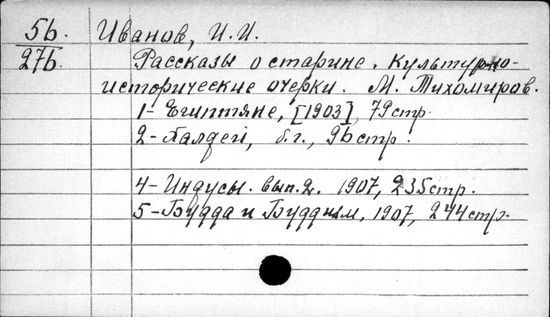 5б. Иванов, И.И.
27б. Рассказы о старине. Культурно-
исторические очерки. М. Тихомиров.
1- Египтяне, [1903], 79 стр.
2- Халдеи, б.г., 96 стр.
4- Индусы. вып. 2. 1907, 235 стр.
5- Будда и Буддизм, 1907, 244 стр.